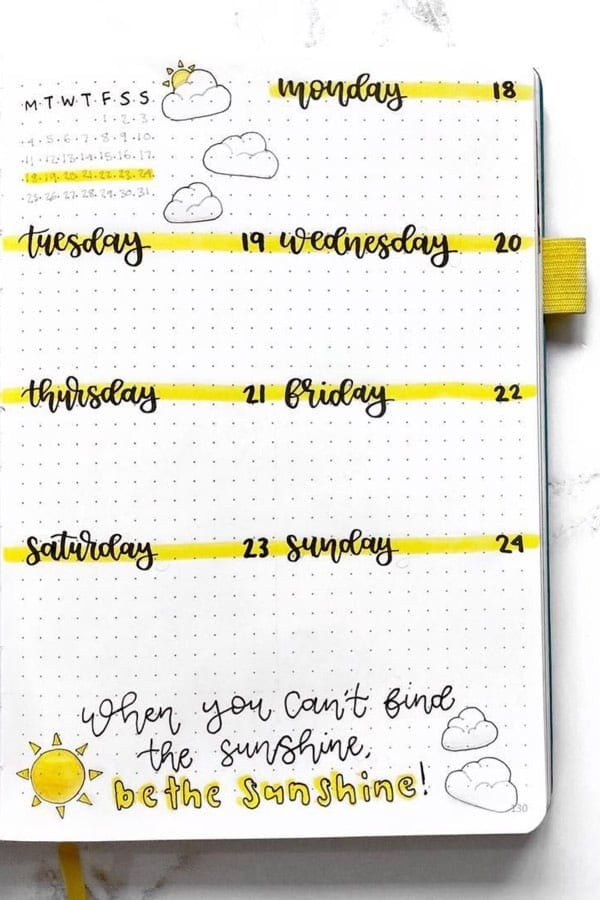 M·T·W·T·F·S·S
1·2·3
4·5·6·7·8·9·10
11·12·13·14·15·16·17
18·19·20·21·22·23·24
25·26·27·28·29·30·31
monday 18
tuesday 19
wednesday 20
thursday 21
friday 22
saturday 23
sunday 24
When you can't find
the sunshine,
be the sunshine!
130